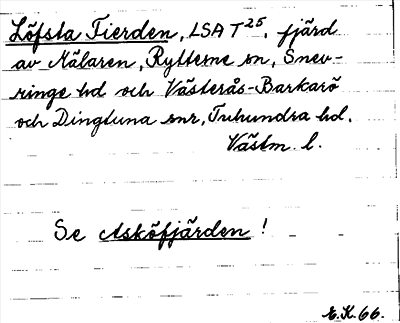 Löfsta Fierden, LSA T25, fjärd
av Mälaren, Rytterne sn, Snev-
ringe hd och Västerås-Barkarö
och Dingtuna snr, Tuhundra hd.
Västm. l.
Se Asköfjärden !
E.K. 66.